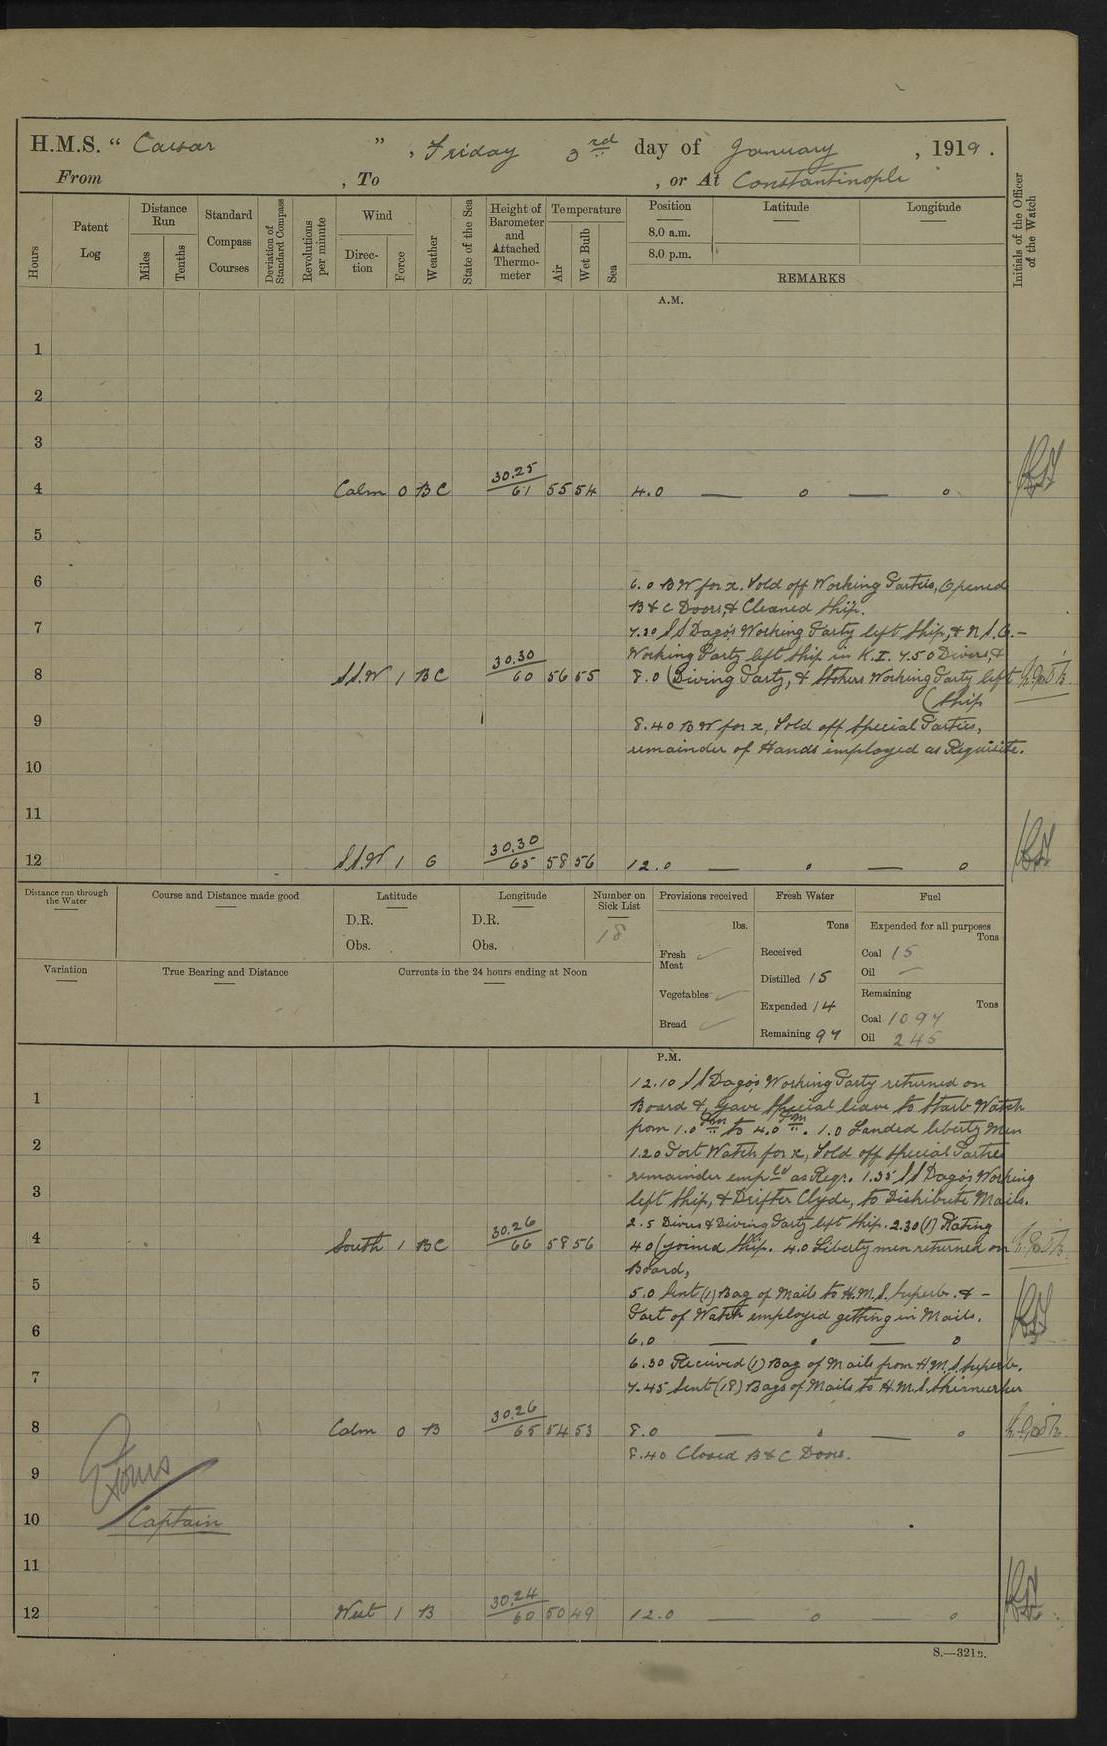 H.M.S. “ Caesar ” , Friday 3rd day of January , 1919 .
From , To , or At Constantinople
Hours
Patent Log
Distance Run
Miles
Tenths
Standard Compass Courses
Deviation of Standard Compass
Revolutions per minute
Wind
Direc-tion
Force
Weather
State of the Sea
Height of Barometer and Attached Thermo-meter
Temperature
Air
Wet Bulb
Sea
Position
Latitude
Longitude
8.0 a.m.
8.0 p.m.
REMARKS
Initials of the Officer of the Watch
A.M.
1
2
3
4 Calm 0 B C 30.25/61 55 54 4.0 — o — o
5
6 6.0 B W for x. Told off Working Parties, Opened
B & C Doors, & Cleaned Ship.
7 7.20 S S Dago's Working Party left Ship, & N.S.O. –
Working Party left Ship in K.I. 7.50 Divers, &
8 S.S.W 1 B C 30.30/60 56 55 8.0 (Diving Party, & Stokers Working Party left
(Ship
9 8.40 B W for x, Told off Special Parties,
remainder of Hands employed as Requisite.
10
11
12 S.S.W 1 G 30.30/65 58 56 12.0 — o — o
Distance run through the Water
Course and Distance made good
Latitude
D.R.
Obs.
Longitude
D.R.
Obs.
Number on Sick List
18
Provisions received
lbs.
Fresh Meat
Vegetables
Bread
Fresh Water
Tons
Received
Distilled 15
Expended 14
Remaining 97
Fuel
Expended for all purposes
Tons
Coal 15
Oil –
Remaining
Tons
Coal 1097
Oil 245
Variation
True Bearing and Distance
Currents in the 24 hours ending at Noon
P.M.
12.10 S S Dago's Working Party returned on
1 Board &, gave Special leave to Starb Watch
from 1.0 Pm to 4.0 Pm. 1.0 Landed liberty men
2 1.20 Port Watch for x, Told off Special Parties
remainder emp'ld as Reqr. 1.35 S S Dago's Working
3 left Ship, & Drifter Clyde, to Distribute Mails.
2.5 Divers & Diving Party left Ship. 2.30 (1) Rating
4 South 1 B C 30.26/66 58 56 4 0 (joined Ship. 4.0 Liberty men returned on
Board,
5 5.0 Sent (1) Bag of Mails to H.M.S. Superb. & –
Part of Watch employed getting in Mails.
6 6.0 — o — o
6.30 Received (1) Bag of Mails from H.M.S. Superb.
7 7.45 Sent (18) Bags of Mails to H.M.S. Skirmisher
8 Calm 0 B 30.26/65 54 53 8.0 — o — o
8.40 Closed B & C Doors.
9
10 Captain
11
12 West 1 B 30.24/60 50 49 12.0 — o — o
S.—321B.